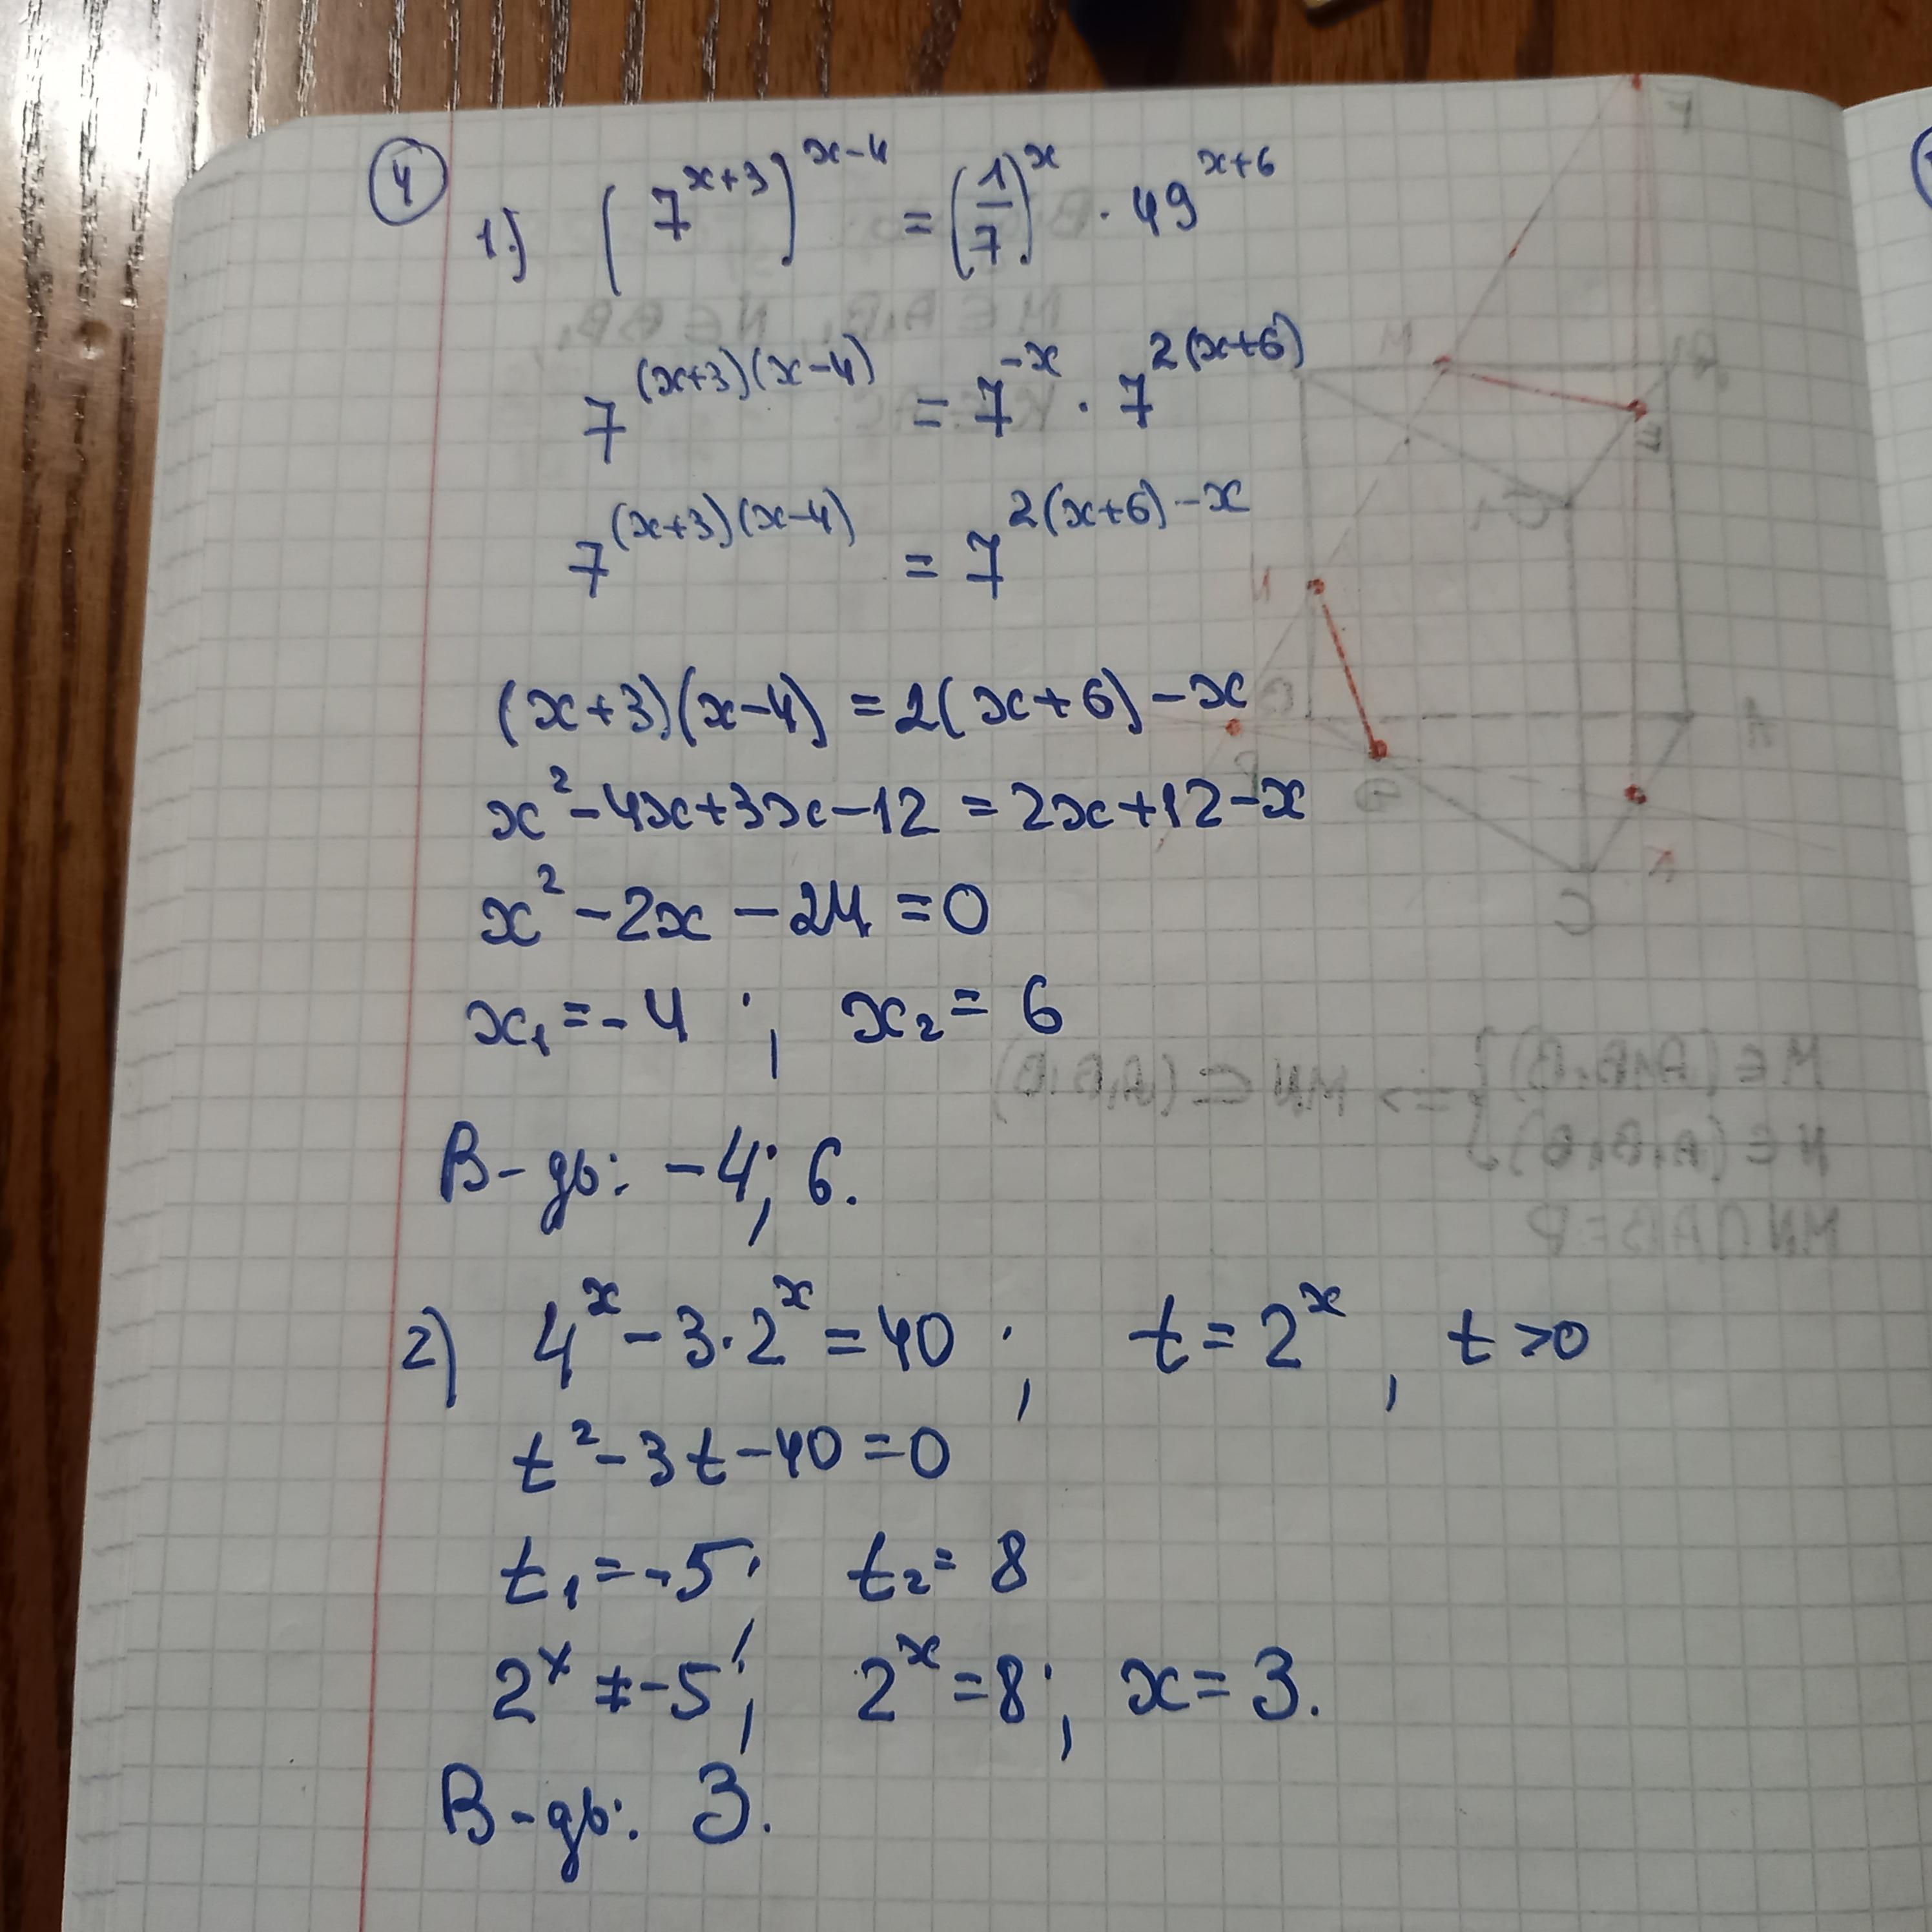 4
1.) (7^(x+3))^(x-4) = (1/7)^x · 49^(x+6)
7^((x+3)(x-4)) = 7^(-x) · 7^(2(x+6))
7^((x+3)(x-4)) = 7^(2(x+6)-x)
(x+3)(x-4) = 2(x+6)-x
x²-4x+3x-12 = 2x+12-x
x²-2x-24=0
x₁=-4 ; x₂= 6
В-дь: -4; 6.
2) 4^x-3·2^x=40 ; t=2^x , t>0
t²-3t-40=0
t₁=-5; t₂= 8
2^x ≠-5; 2^x=8; x=3.
В-дь: 3.